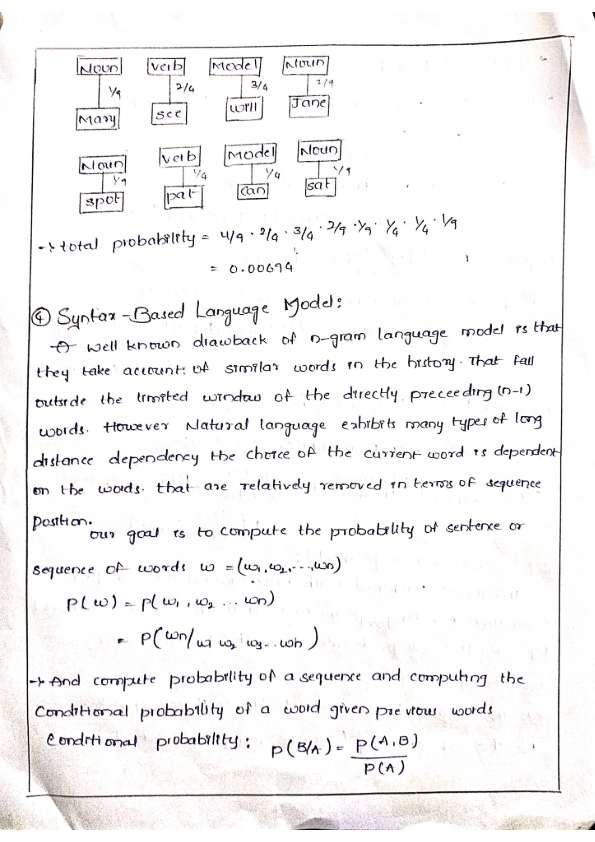 Noun Verb Model Noun
1/9 2/4 3/4 2/9
Mary see will Jane
Noun Verb Model Noun
1/9 1/4 1/4 1/9
spot pat can sat
→ total probability = 4/9 · 2/4 · 3/4 · 2/9 · 1/9 · 1/4 · 1/4 · 1/9
= 0.00694
④ Syntax-Based Language Model:
→ A well known drawback of n-gram language model is that
they take account of similar words in the history. That fall
outside the limited window of the directly preceeding (n-1)
words. However Natural language exhibits many types of long
distance dependency the choice of the current word is dependent
on the words. that are relatively removed in terms of sequence
Position.
our goal is to compute the probability of sentence or
sequence of words w = (w1, w2, ..., wn)
P(w) = P(w1, w2 ... wn)
= P(wn/w1 w2 w3 .. wn)
→ And compute probability of a sequence and computing the
Conditional probability of a word given previous words
Conditional probability: P(B/A) = P(A,B)
P(A)